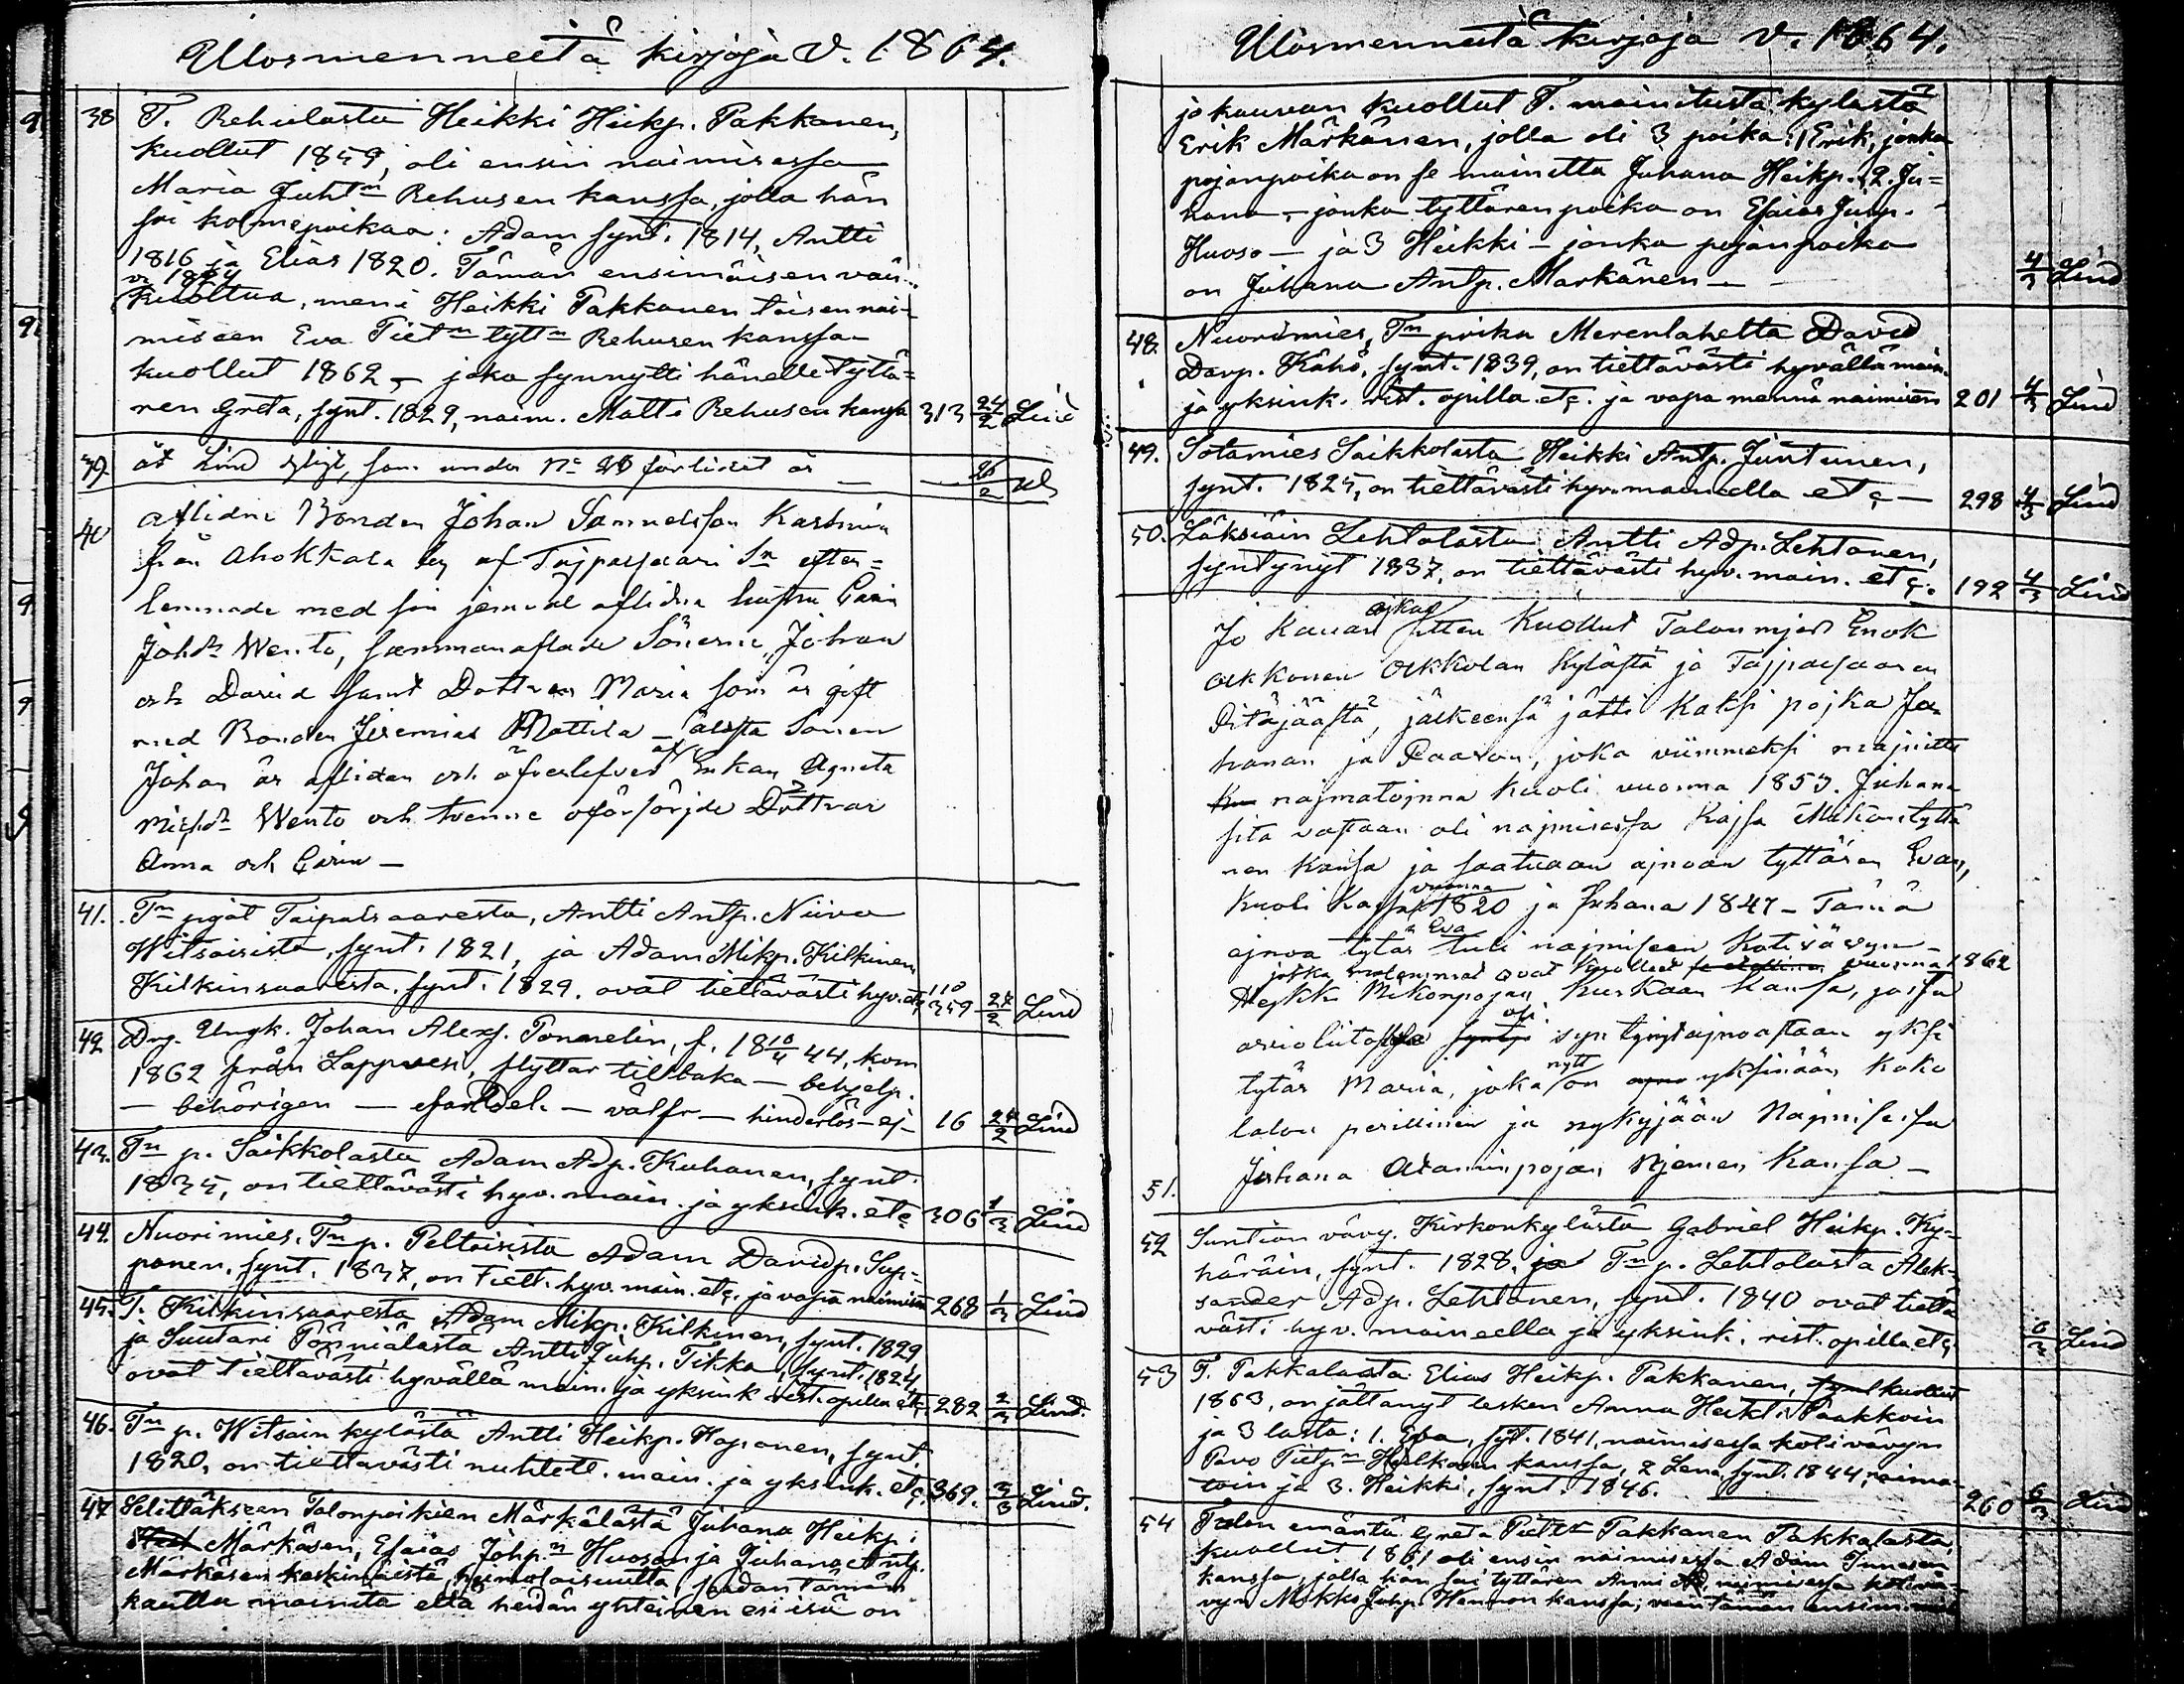 Ulosmenneitä kirjoja V. 1864.
38 T. Rehulasta Heikki Heikp. Pakkanen,
kuollut 1859, oli ensin naimisessa
Maria Juhtn Rehusen kanssa, jolla hän
sai kolme poikaa: Adam synt. 1814, Antti
1816 ja Elias 1820. Tämän ensimäisen
v. kuoltua, meni Heikki Pakkanen toisen nai-
miseen Eva Piet tytn Rehusen kanssa
kuollut 1862 – joka synnytti hänelle tyttä=
ren Greta, synt. 1829, naim. Matti Rehusen kanssa 313 24/2 Lind
39. som under No förlidet är — 26/2
40 Aflidne Bonden Johan Samuelsson
från Ahokkala by af Taipalsaari Sn efter=
lemnade med sin jemväl aflidna hustru Carin
Johdr Wento, sammanaflade Sönerne, Johan
och David samt Dottren Maria som är gift
med Bonden Jeremias Mattila – älsta Sonen
Johan är afliden och öfverlefves af Enkan Agneta
Wento och tvenne oförsörjde Döttrar
Anna och Carin –
41. Tn pojat Taipalsaaresta, Antti Antp. Niiva
Witsaisista, synt. 1821, ja Adam Mikp. Kilkinen
Kilkinsaaresta, synt. 1829. ovat tiettävästi hyv. etc 110 359 24/2 Lind
42 Drg. Ungk. Johan Alexs. Ponnelin, f. 18 10/4 44, kom
1862 från Lappvesi, flyttar tillbaka – behjelp.
– behörigen – – välfr – hinderlös – ej – 16 24/2 Lind
43. Tn p. Saikkolasta Adam Adp. Kuhanen, synt.
1835, on tiettävästi hyv. main. ja yksink. etc 306 1/3 Lind
44. Nuorimies, Tn p. Peltoisista Adam Davidp. Sup=
ponen, synt. 1837, on tiett. hyv. main. etc. ja vapa naimisen 268 1/3 Lind
45. T. Kilkinsaaresta Adam Mikp. Kilkinen, synt. 1829
ja Suutari Pönniälästä Antti Juhp. Tikka, synt. 1824
ovat tiettävästi hyvällä main. ja yksink rist. opilla etc. 282 2/3 Lind.
46. Tn p. Witsain kylästä Antti Heikp. Kaponen, synt.
1820, on tiettävästi nuhtett. main. ja yksink. etc. 369. 3/3 Lind.
47 Selittäkseen Talonpoikien Märkälästä Juhana Heikp.
Märkäsen, Esaias Johp.n Huoson ja Juhana Antp.
Märkäsen keskinäistä heimolaisuutta, saadan tämän
kautta mainita että heidän yhteinen esi isä on
Ulosmenneitä kirjoja V. 1864.
jo kauvan kuollut T. mainitusta kylästä
Erik Märkänen, jolla oli 3 poika: 1 Erik, jonka
pojanpoika on se mainittu Juhana Heikp. 2. Ju=
hana – jonka tyttärenpoika on Esaias Juhp.
Huoso – ja 3 Heikki – jonka pojanpoika
on Juhana Antp. Märkänen — 4/3 Lind
48. Nuorimies, Tn poika Merenlahetta David
Davp. Kähö, synt. 1839, on tiettävästi hyvällä main.
ja yksink. rist. opilla etc. ja vapa mennä naimisen 201 4/3 Lind
49. Sotamies Saikkolasta Heikki Antp. Juntunen,
synt. 1825, on tiettävästi hyv. maineella etc — 298 4/3 Lind
50. Läksiäin Lehtolasta Antti Adp. Lehtonen,
syntynyt 1837, on tiettävästi hyv. main. etc. 192 4/3 Lind
Jo Kauan aikaa sitten Kuollut Talon mies Enok
Akkonen Akkolan Kylästä ja Taipalsaaren
Pitäjäästä, jälkeensä jätti Kaksi pojka Ju-
hanan ja Paavon, joka viimmeksi majnittu
najmatojnna Kuoli vuonna 1853. Juhana
sitä vastaan oli najmisessa Kajsa Mikontyttä
ren Kansa ja saatuaan ajnoan tyttären Evan,
Kuoli Kajsa vuonna 1820 ja Juhana 1847 – Tämä
ajnoa tytär Eva tuli najmiseen Kotivävyn –
jotka molemmat ovat Kuolleet vuonna 1862
Hejkki Mikonpojan Kurkaan Kansa, josta
avioliitossa on syntynyt ajnoastaan yksi
tytär Maria, joka nytt on yksinään koko
talon perillinen ja nykyjään Najmisessa
Juhana Ataminpojan Njemen Kansa –
51.
52 Suntion vävy Kirkonkylästä Gabriel Heikp. Ky=
häräin, synt. 1828, ja Tn p. Lehtolasta Alek-
sander Adp. Lehtonen, synt. 1840 ovat tiettä
västi hyv. maineella ja yksink. rist. opilla etc. 6/3 Lind
53 T. Pakkalasta Elias Heikp. Pakkanen, kuollut
1863, on jättänyt lesken Anna Heikt. Paakkoin
ja 3 lasta: 1. Eva, syt. 1841, naimisessa kotivävyn
Pavo Pietpn kanssa, 2 Lena, synt. 1844, naima-
toin ja 3. Heikki, synt. 1846. 260 6/3 Lind
54 Talon emäntä Greta Piett Pakkanen Pakkalasta,
kuollut 1861 oli ensin naimisessa Adam Innasen
kanssa, jolla hän sai tyttären Anni naimisessa kotivä-
vyn Mikko Juhp. Hennon kanssa; vaan tämän ensim.